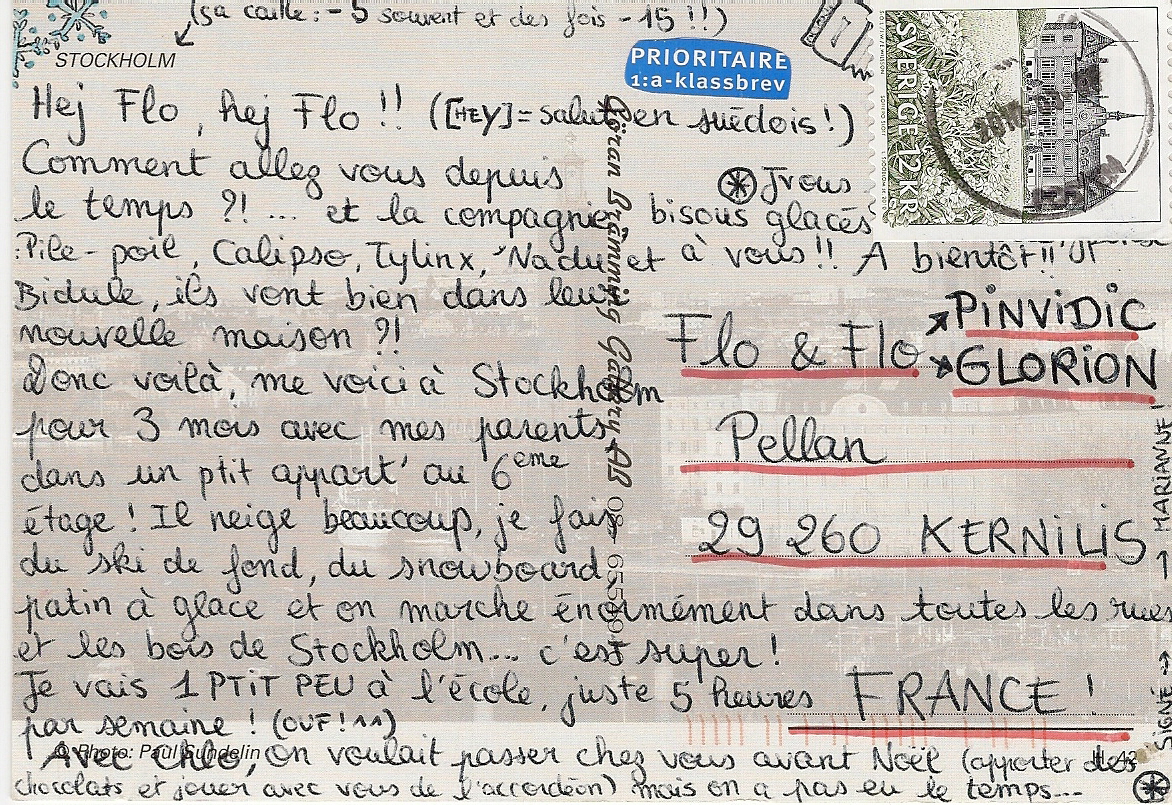 (sa caille : - 5 souvent et des fois - 15 !!)
STOCKHOLM
PRIORITAIRE
1:a-klassbrev
SVERIGE 12 KR
Hej Flo, hej Flo !! ([HEY] = salut en suédois !)
Comment allez vous depuis
le temps ?! ... et la compagnie
: Pile-poil, Calipso, Tylinx, Nadu et
Bidule, ils vont bien dans leur
nouvelle maison ?!
Donc voilà, me voici à Stockholm
pour 3 mois avec mes parents
dans un ptit appart' au 6eme
étage ! Il neige beaucoup, je fais
du ski de fond, du snowboard,
patin à glace et on marche énormément dans toutes les rues
et les bois de Stockholm... c'est super !
Je vais 1 PTiT PEU à l'école, juste 5 heures
par semaine ! (OUF ! ^^)
© Photo: Paul Sundelin
Avec Chlo, on voulait passer chez vous avant Noël (apporter des
chocolats et jouer avec vous de l'accordéon) mais on a pas eu le temps...
⊛ J'vous
bisous glacés
à vous !! A bientôt !!
Flo & Flo
PiNViDiC
GLORiON
Pellan
29 260 KERNiLiS
FRANCE !
SIGNÉ → MARIANNE !
Göran Brämming Gallery AB 08-